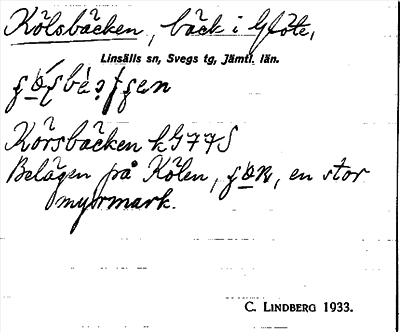 Kölsbäcken, bäck i Glöte,
Linsälls sn, Svegs tg, Jämtl. län.
Körsbäcken k G77S
Belägen på Kölen, en stor
myrmark.
C. LINDBERG 1933.